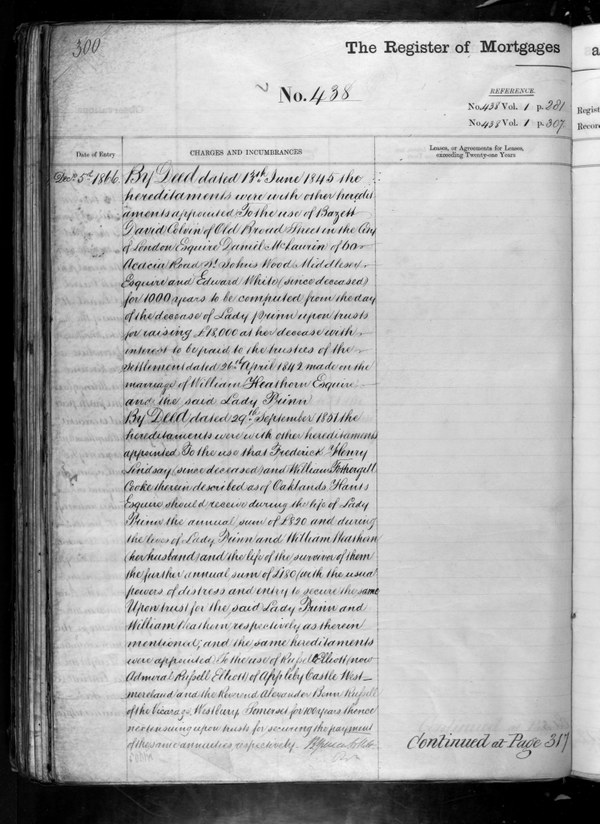 300
The Register of Mortgages
a
No. 438
REFERENCE.
No. 438 Vol. 1 p. 281
No. 438 Vol. 1 p. 307
Regist
Record
Date of Entry
CHARGES AND INCUMBRANCES
Leases, or Agreements for Leases,
exceeding Twenty-one Years
Decr. 5th 1866
By Deed dated 13th June 1845 the
hereditaments were with other heredit
aments appointed To the use of Bazett
David Colvin of Old Broad Street in the City
of London Esquire Daniel McLaurin of 60
Acacia Road St. Johns Wood Middlesex
Esquire and Edward White (since deceased)
for 1000 years to be computed from the day
of the decease of Lady Prinn upon trusts
for raising £18,000 at her decease with
interest to be paid to the trustees of the
Settlement dated 26th April 1842 made on the
marriage of William Heathorn Esquire
and the said Lady Prinn
By Deed dated 29th September 1851 the
hereditaments were with other hereditaments
appointed To the use that Frederick Henry
Lindsay (since deceased) and William Fothergill
Cooke therein described as of Oaklands Hants
Esquire should receive during the life of Lady
Prinn the annual sum of £820 and during
the lives of Lady Prinn and William Heathorn
(her husband) and the life of the survivor of them
the further annual sum of £180 with the usual
powers of distress and entry to secure the same
Upon trust for the said Lady Prinn and
William Heathorn respectively as therein
mentioned; and the same hereditaments
were appointed To the use of Russell Elliott (now
Admiral Russell Elliott) of Appleby Castle West-
moreland and the Reverend Alexander Benn Russell
of the Vicarage Westbury Somerset for 100 years thence
next ensuing upon trusts for securing the payment
of the same annuities respectively.
Continued at Page 317